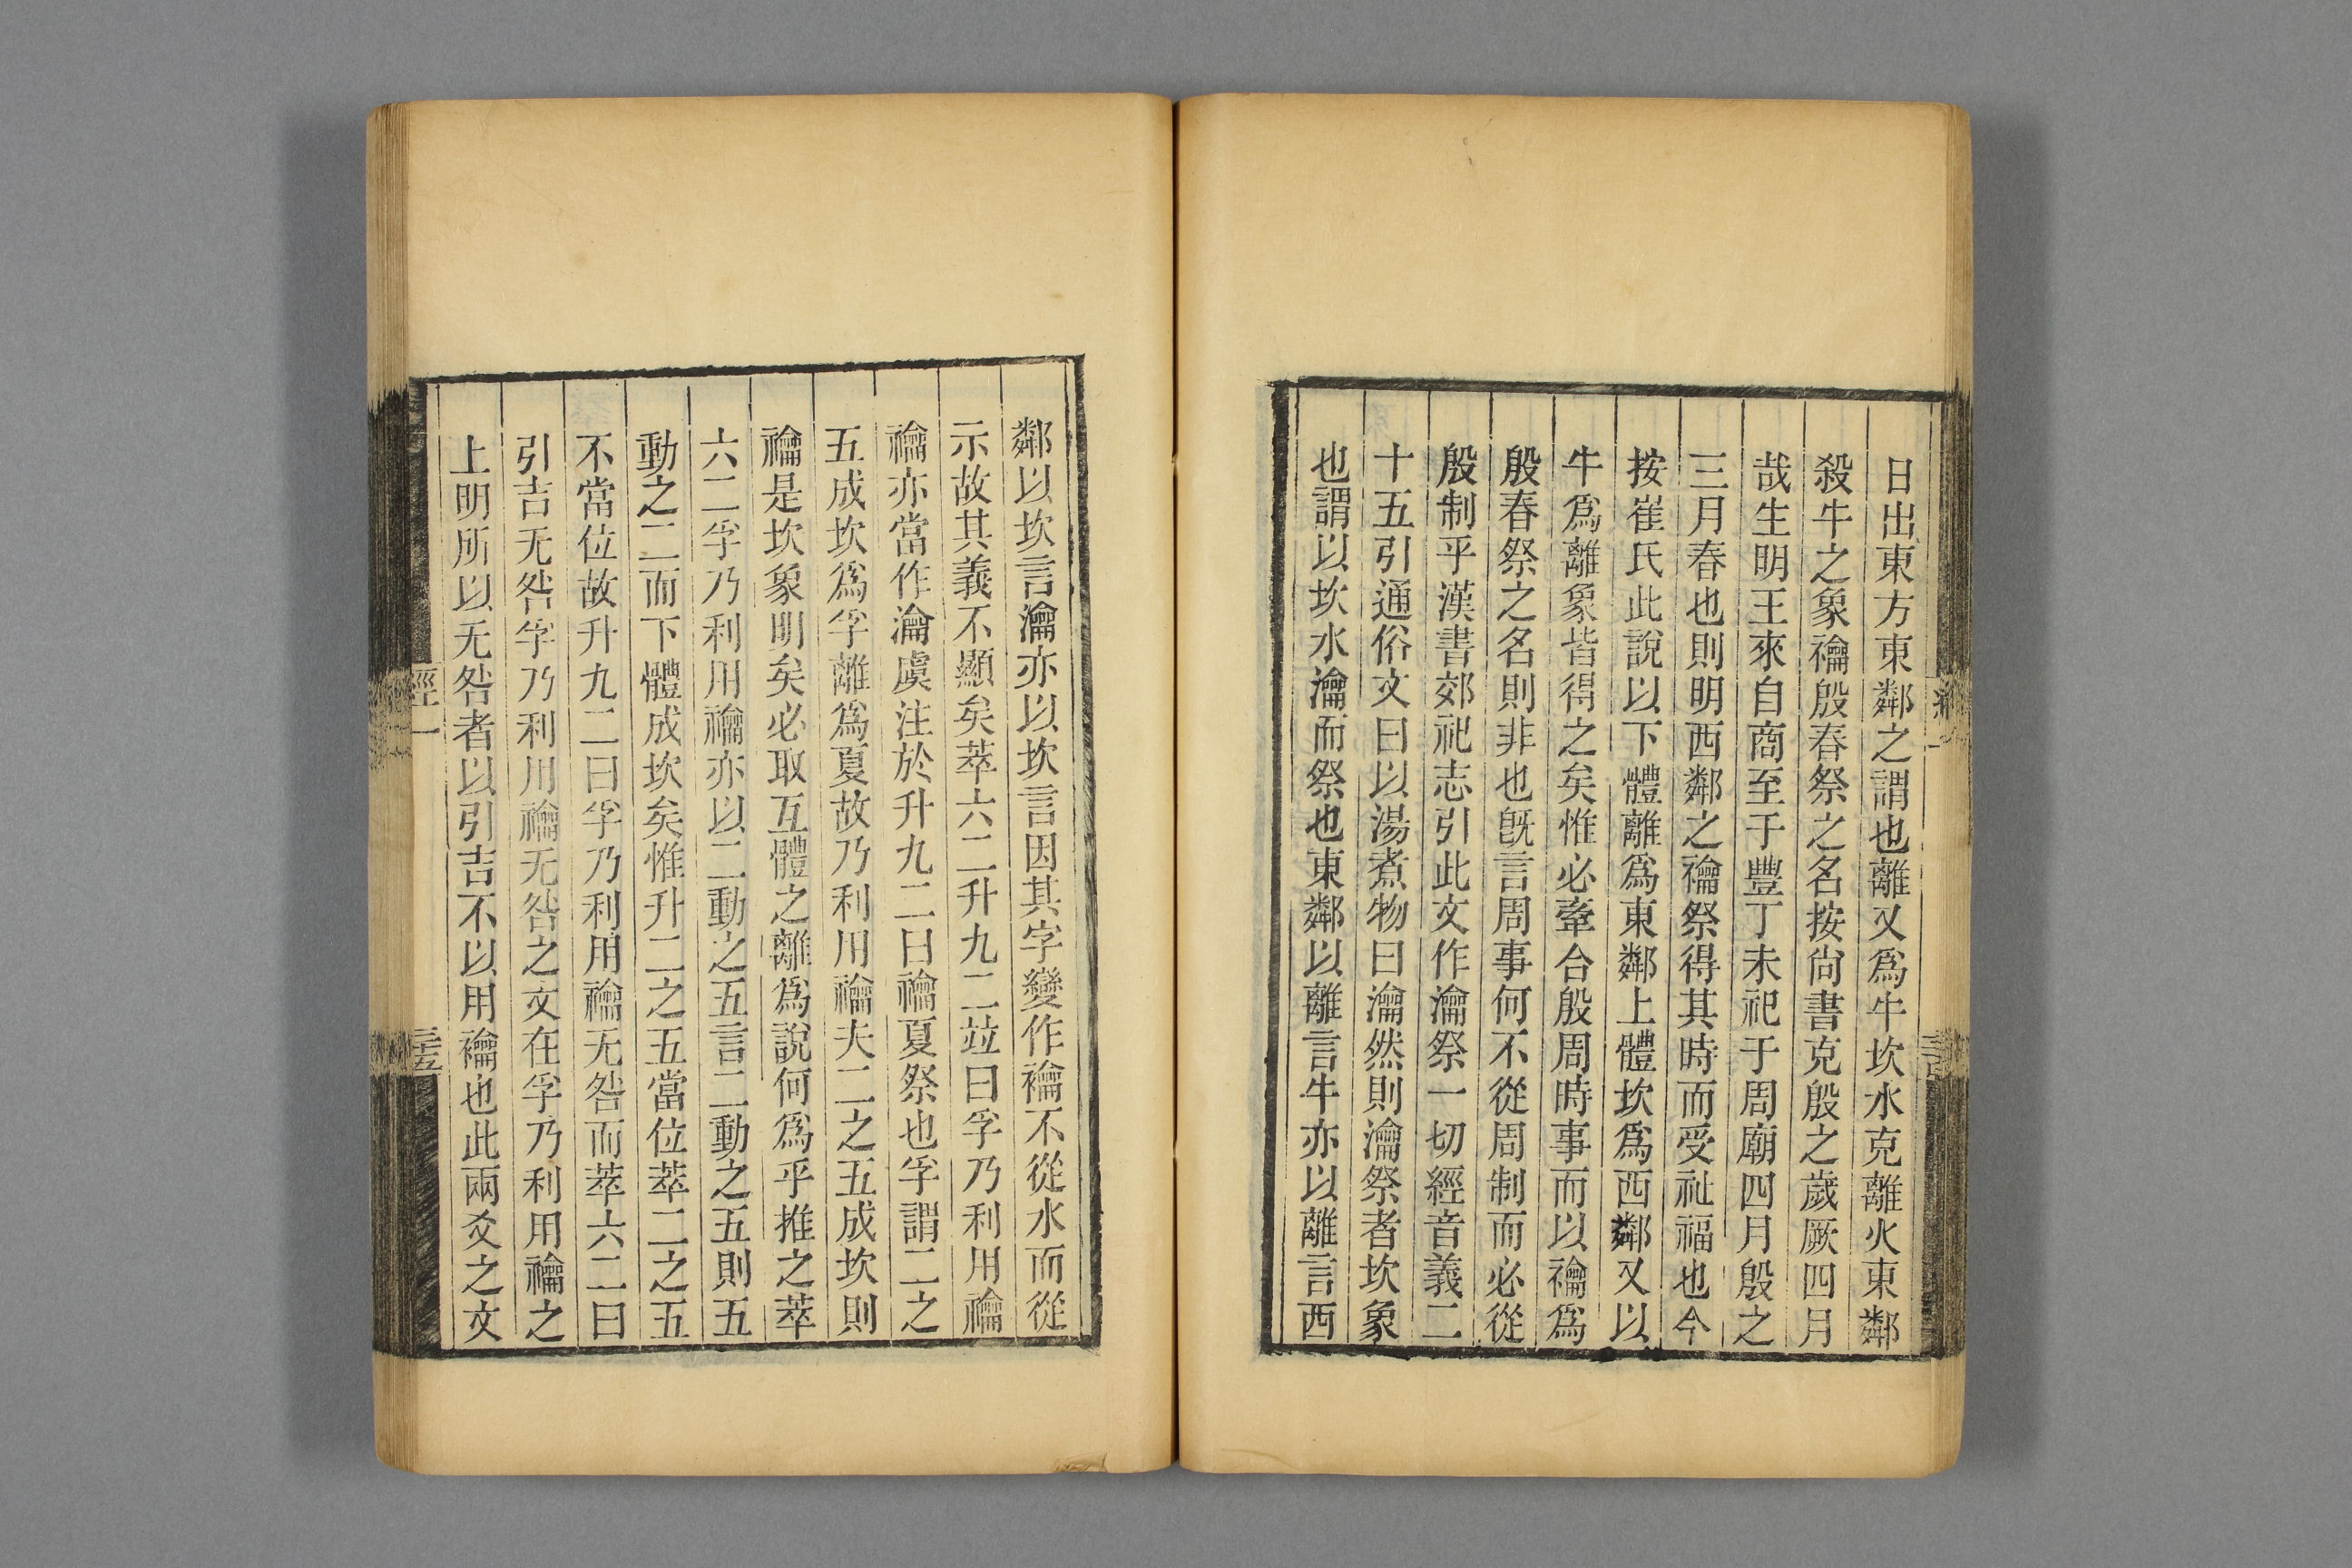 日出東方東鄰之謂也離又爲牛坎水克離火東鄰
殺牛之象禴殷春祭之名按尙書克殷之歲厥四月
哉生明王來自商至于豐丁未祀于周廟四月殷之
三月春也則明西鄰之禴祭得其時而受祉福也今
按崔氏此說以下體離爲東鄰上體坎爲西鄰又以
牛爲離象皆得之矣惟必牽合殷周時事而以禴爲
殷春祭之名則非也旣言周事何不從周制而必從
殷制乎漢書郊祀志引此文作瀹祭一切經音義二
十五引通俗文曰以湯煮物曰瀹然則瀹祭者坎象
也謂以坎水瀹而祭也東鄰以離言牛亦以離言西
鄰以坎言瀹亦以坎言因其字變作禴不從水而從
示故其義不顯矣萃六二升九二竝曰孚乃利用禴
禴亦當作瀹虞注於升九二曰禴夏祭也孚謂二之
五成坎爲孚離爲夏故乃利用禴夫二之五成坎則
禴是坎象明矣必取互體之離爲說何爲乎推之萃
六二孚乃利用禴亦以二動之五言二動之五則五
動之二而下體成坎矣惟升二之五當位萃二之五
不當位故升九二曰孚乃利用禴无咎而萃六二曰
引吉无咎孚乃利用禴无咎之文在孚乃利用禴之
上明所以无咎者以引吉不以用禴也此兩爻之文
經一
三五